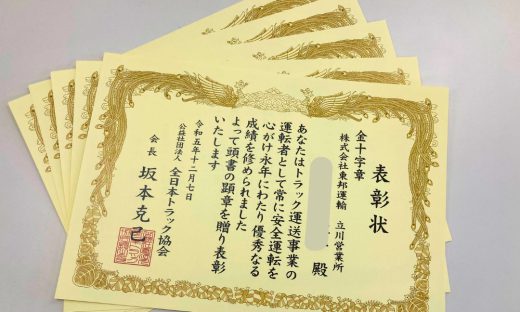 表彰状
金十字章
株式会社東邦運輸 立川営業所
殿
あなたはトラック運送事業の
運転者として常に安全運転を
心がけ永年にわたり優秀なる
成績を修められました
よって頭書の顕章を贈り表彰
いたします
令和五年十二月七日
公益社団法人 全日本トラック協会
会長 坂本克己